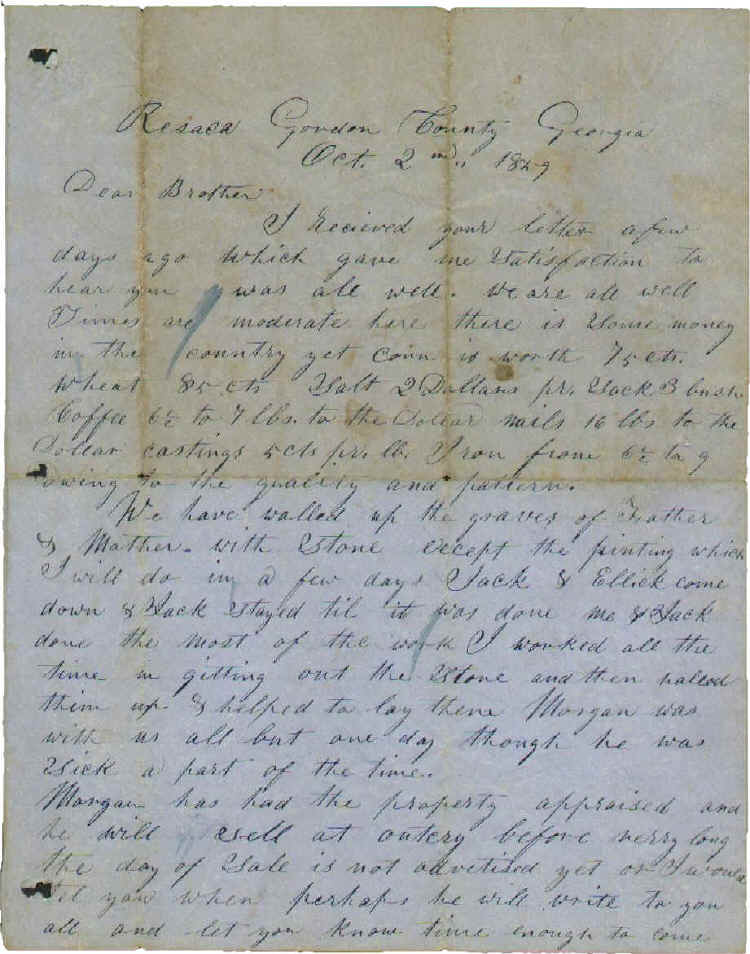 Resaca Gordon County Georgia
Oct. 2nd. 1859
Dear Brother
I Recieved your letter a few
days ago which gave me Satisfaction to
hear you was all well. We are all well
Times are moderate here there is Some money
in the country yet Corn is worth 75 cts.
Wheat 85 cts Salt 2 Dollars pr. Sack 3 bush
Coffee 6½ to 7 lbs. to the Dollar nails 16 lbs to the
Dollar castings 5 cts pr. lb. Iron from 6½ to 9
owing to the quality and pattern.
We have walled up the graves of Father
& Mother. with Stone except the pinting which
I will do in a few days Jack & Ellick come
down & Jack Stayed til it was done me & Jack
done the most of the work I worked all the
time in gitting out the Stone and then halled
them up & helped to lay them Morgan was
with us all but one day though he was
Sick a part of the time.
Morgan has had the property appraised and
he will sell at outcry before verry long
the day of Sale is not advetised yet or I would
tel you when perhaps he will write to you
all and let you know time enough to come